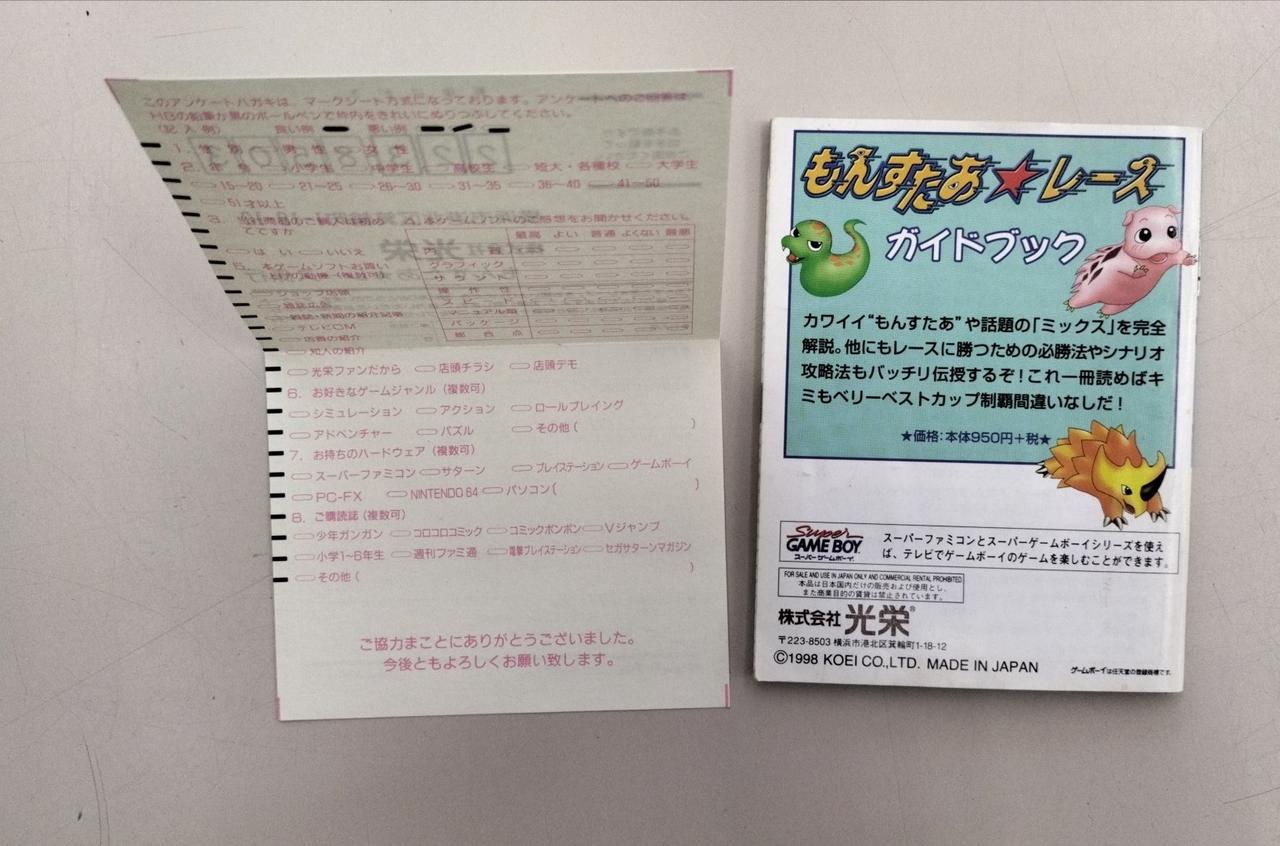 このアンケートハガキは、マークシート方式になっております。アンケートへのご回答は
HBの鉛筆か黒のボールペンで枠内をきれいにぬりつぶしてください。
(記入例) 良い例 悪い例
1. 性別 男性 女性
2. 年令 小学生 中学生 高校生 短大・各種校 大学生
15~20 21~25 26~30 31~35 36~40 41~50
51才以上
3. 当社商品のご購入は初めてですか
はい いいえ
4. 本ゲームソフトのご感想をお聞かせください。
最高 よい 普通 よくない 最悪
内容
グラフィック
サウンド
操作性
スピード
マニュアル類
パッケージ
総合点
5. 本ゲームソフトお買い
(複数可)
ショップ店頭
雑誌広告
雑誌・新聞の紹介記事
テレビCM
店員の紹介
知人の紹介
光栄ファンだから 店頭チラシ 店頭デモ
6. お好きなゲームジャンル(複数可)
シミュレーション アクション ロールプレイング
アドベンチャー パズル その他( )
7. お持ちのハードウェア(複数可)
スーパーファミコン サターン プレイステーション ゲームボーイ
PC-FX NINTENDO 64 パソコン( )
8. ご購読誌(複数可)
少年ガンガン コロコロコミック コミックボンボン Vジャンプ
小学1~6年生 週刊ファミ通 電撃プレイステーション セガサターンマガジン
その他( )
ご協力まことにありがとうございました。
今後ともよろしくお願い致します。
もんすたあ★レース
ガイドブック
カワイイ“もんすたあ”や話題の「ミックス」を完全
解説。他にもレースに勝つための必勝法やシナリオ
攻略法もバッチリ伝授するぞ!これ一冊読めばキ
ミもベリーベストカップ制覇間違いなしだ!
★価格:本体950円+税★
Super
GAME BOY
スーパーゲームボーイ
スーパーファミコンとスーパーゲームボーイシリーズを使え
ば、テレビでゲームボーイのゲームを楽しむことができます。
FOR SALE AND USE IN JAPAN ONLY AND COMMERCIAL RENTAL PROHIBITED
本品は日本国内だけの販売および使用とし、
また商業目的の賃貸は禁止されています。
株式会社 光栄®
〒223-8503 横浜市港北区箕輪町1-18-12
©1998 KOEI CO.,LTD. MADE IN JAPAN
ゲームボーイは任天堂の登録商標です。